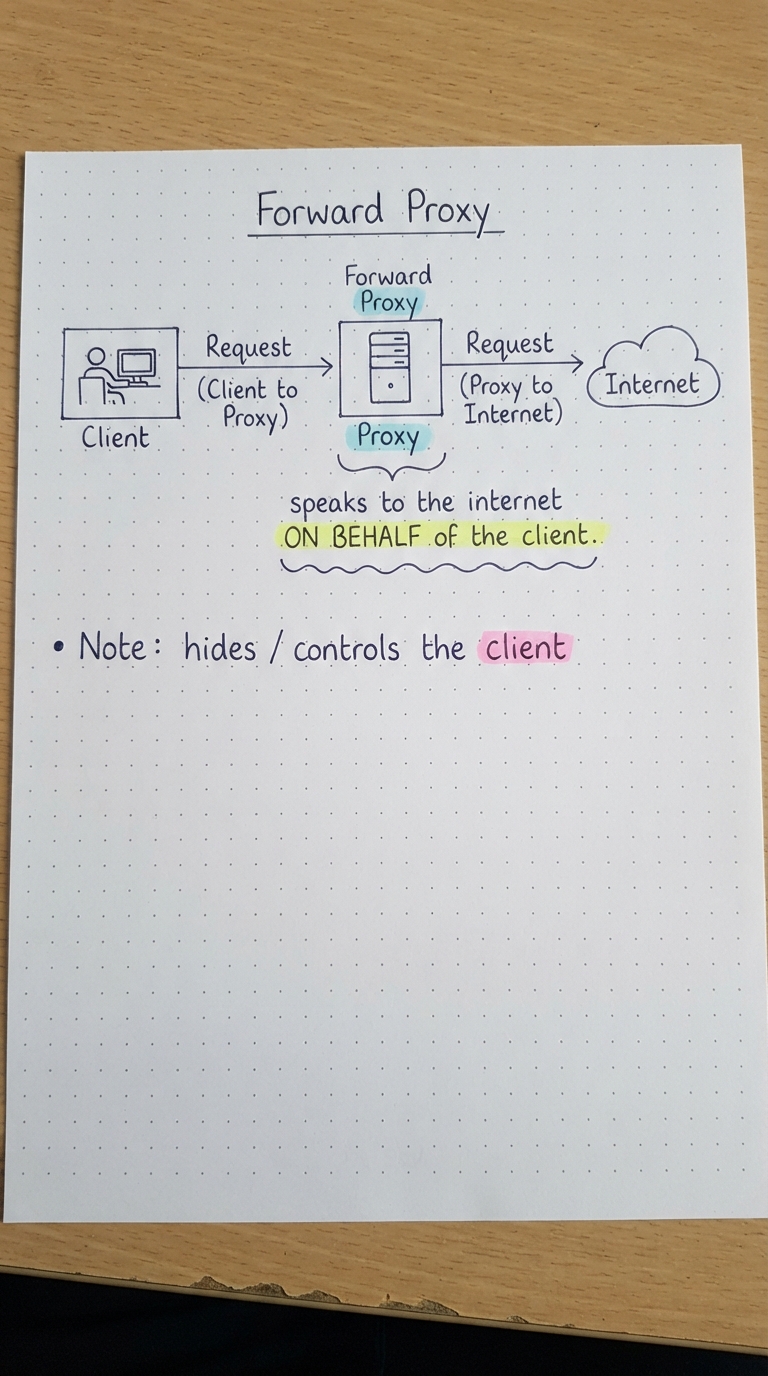 Forward Proxy
Forward
Proxy
Request
(Client to
Proxy)
Request
(Proxy to
Internet)
Internet
Client
Proxy
speaks to the internet
ON BEHALF of the client.
• Note: hides / controls the client